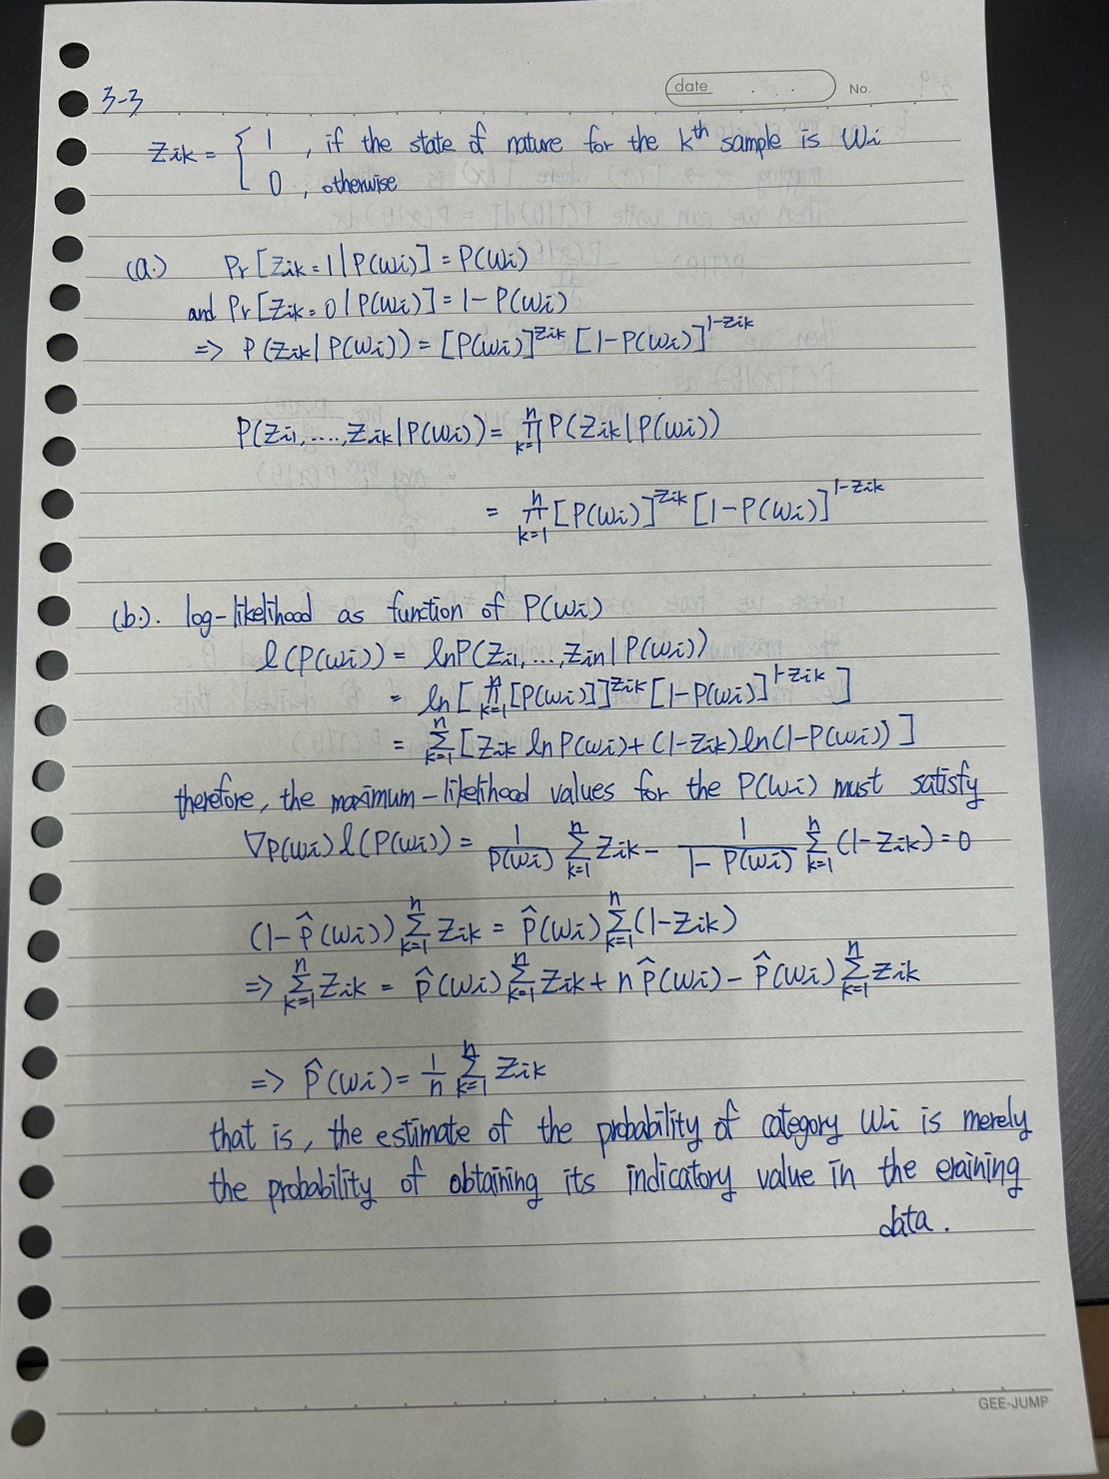 date . . . No.
3-3
Zik = { 1 , if the state of nature for the kth sample is Wi
0 , otherwise
(a.) Pr[Zik=1|P(Wi)]=P(Wi)
and Pr[Zik=0|P(Wi)]=1-P(Wi)
=> P(Zik|P(Wi))=[P(Wi)]^Zik [1-P(Wi)]^1-Zik
P(Zi1,....,Zik|P(Wi))= ∏ k=1 n P(Zik|P(Wi))
= ∏ k=1 n [P(Wi)]^Zik [1-P(Wi)]^1-Zik
(b.). log-likelihood as function of P(Wi)
l(P(Wi)) = lnP(Zi1,...,Zin|P(Wi))
= ln[ ∏ k=1 n [P(Wi)]]^Zik [1-P(Wi)]^1-Zik ]
= ∑ k=1 n [Zik lnP(Wi)+(1-Zik)ln(1-P(Wi))]
therefore, the maximum-likelihood values for the P(Wi) must satisfy
∇P(Wi) l(P(Wi)) = 1/P(Wi) ∑ k=1 n Zik - 1/1-P(Wi) ∑ k=1 n (1-Zik)=0
(1-P̂(Wi)) ∑ k=1 n Zik = P̂(Wi) ∑ k=1 n (1-Zik)
=> ∑ k=1 n Zik = P̂(Wi) ∑ k=1 n Zik + nP̂(Wi) - P̂(Wi) ∑ k=1 n Zik
=> P̂(Wi) = 1/n ∑ k=1 n Zik
that is, the estimate of the probability of category Wi is merely
the probability of obtaining its indicatory value in the eraining
data.
GEE-JUMP